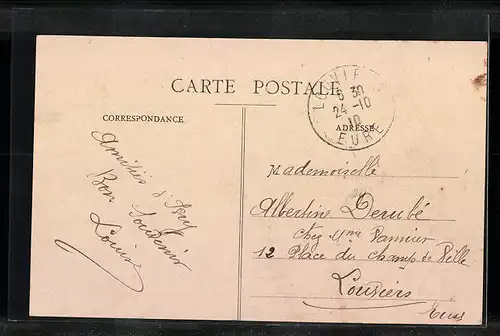 CARTE POSTALE
CORRESPONDANCE
ADRESSE
LOUVIERS
6 30
24-10
10
EURE
Amitiés d'
Bon Souvenir
Louise
Mademoiselle
Albertine Derubé
Chez Mme
12 Place du Champ de Ville
Louviers
Eure